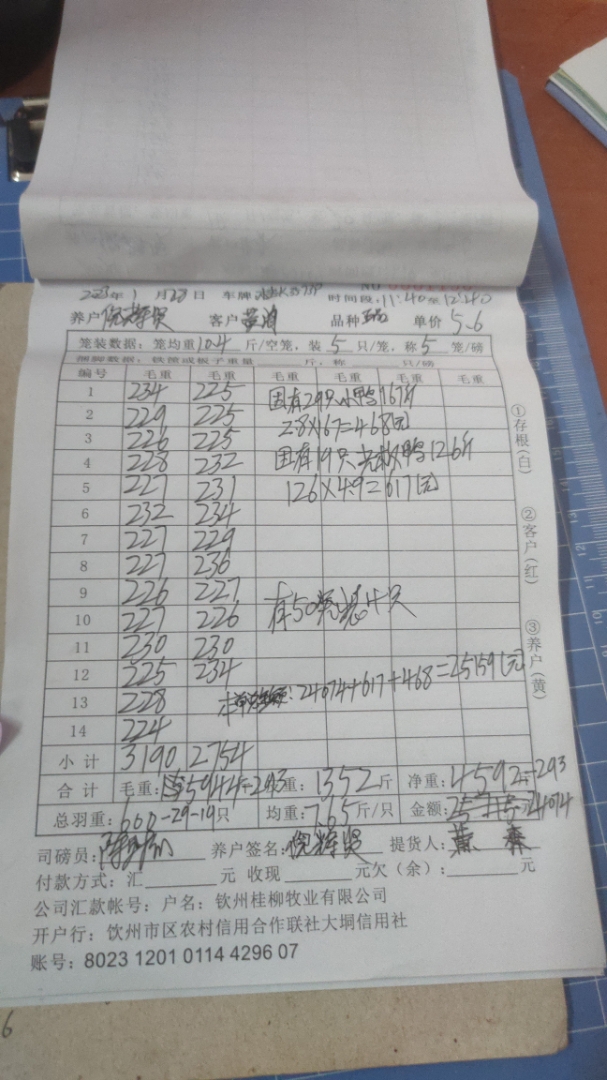 2023年1月28日 车牌 时间段:11:40至12:40
养户 客户 品种 单价 5.6
笼装数据:笼均重10.4斤/空笼,装5只/笼,称5笼/磅
捆脚数据:铁筐或板子重量 斤,称 只/磅
编号 毛重 毛重 毛重 毛重 毛重 毛重
1 234 225 固有29只小鸭167斤
2 229 225 2.8×167=468元
3 226 225
4 228 232 固有19只 鸭126斤
5 227 231 126×4.9=617元
6 232 234
7 227 229
8 227 236
9 226 227
10 227 226 有50 4只
11 230 230
12 225 234
13 228 24074+617+468=25159元
14 224
小计 3190 2754
合计 毛重:5944-293 重:1352斤 净重:4592-293
总羽重:660-29-19只 均重:7.65斤/只 金额: 24074
司磅员: 养户签名: 提货人:
付款方式:汇 元 收现 元欠(余): 元
公司汇款帐号:户名:钦州桂柳牧业有限公司
开户行:钦州市区农村信用合作联社大垌信用社
账号:8023 1201 0114 4296 07
①存根(白)
②客户(红)
③养户(黄)
6